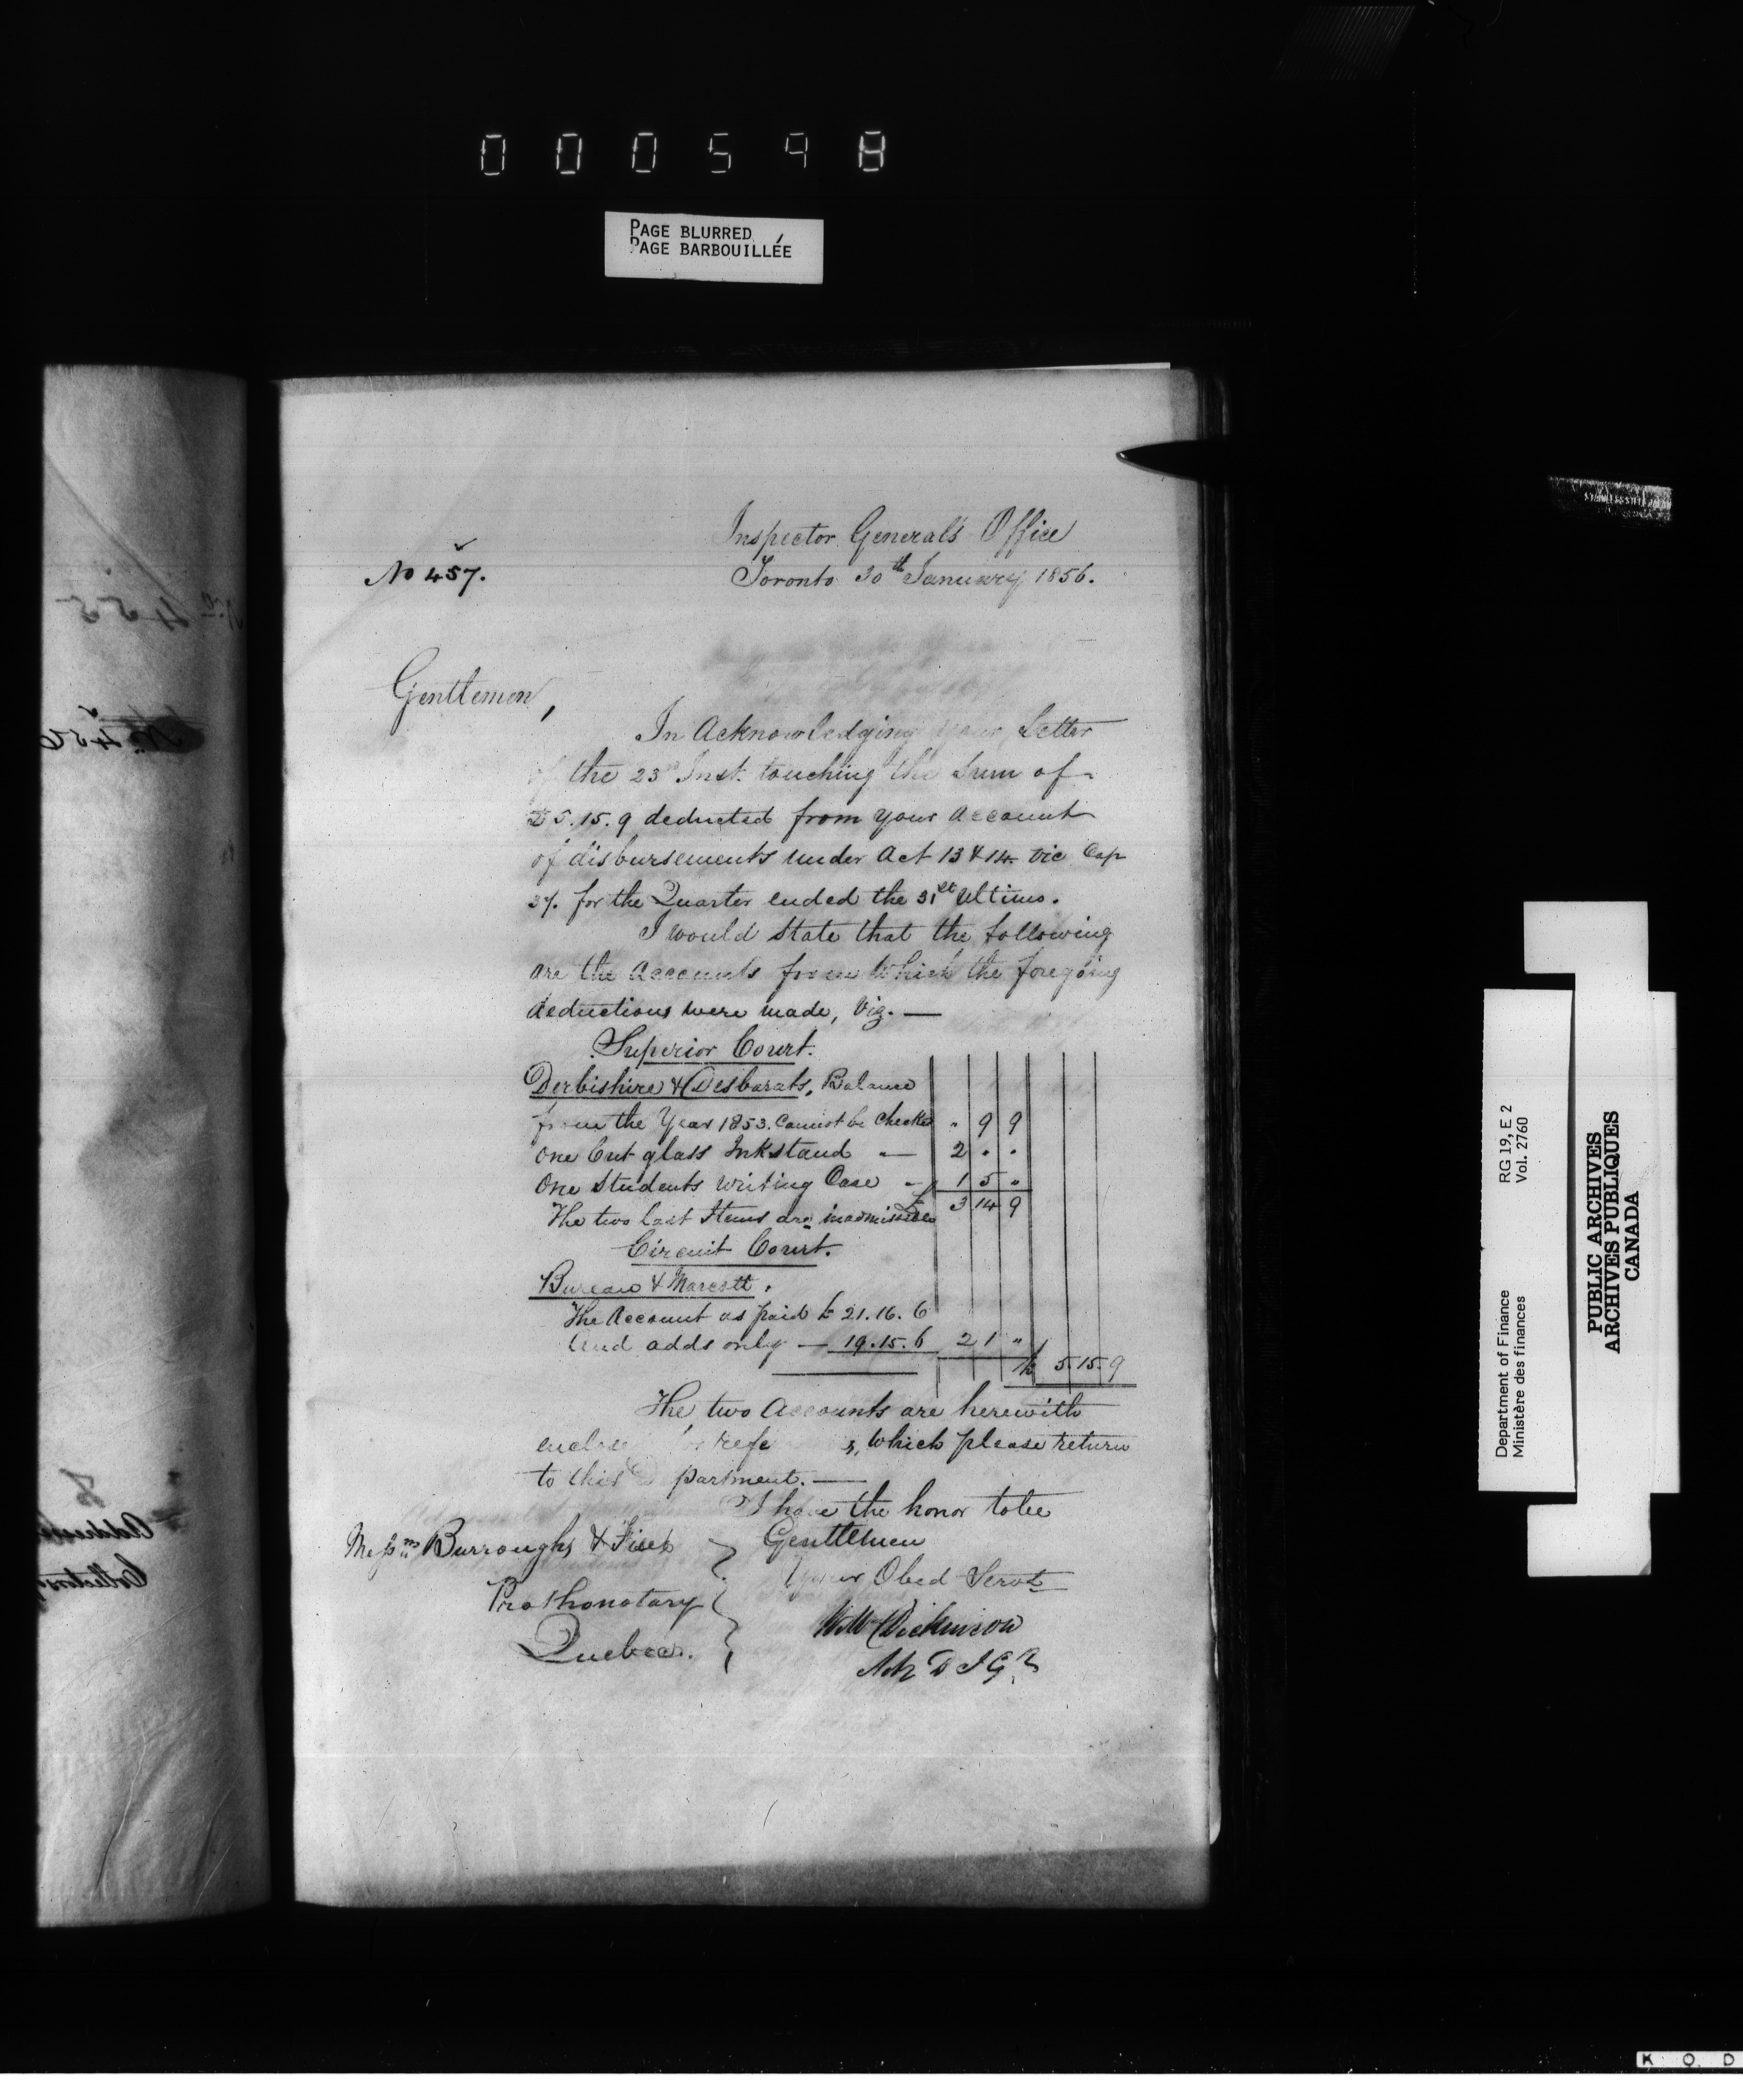 000598
PAGE BLURRED
PAGE BARBOUILLÉE
Inspector General's Office
No 457.
Toronto 30th January 1856.
Gentlemen,
In Acknowledging your Letter
of the 23rd Inst. touching the Sum of
£5.15.9 deducted from your Account
of disbursements under Act 13 & 14 Vic Cap
37. for the Quarter ended the 31st Ultimo.
I would State that the following
are the Accounts from which the foregoing
deductions were made, Viz. —
Superior Court.
Derbishire & Desbarats, Balance
from the Year 1853. Cannot be Checked " 9 9
One Cut glass Inkstand — 2 " "
One Students Writing Case — 1 5 "
£ 3 14 9
The two last Items are inadmissible
Circuit Court.
Bureau & Marcott.
The Account as paid £ 21.16.6
And adds only — 19.15.6 2 1 "
£ 5 15 9
The two Accounts are herewith
which please return
to this Department. —
I have the honor to be
Messrs Burroughs & Fiset
Gentlemen
Your Obed Servt
Prothonotary
Quebec.
Wm Dickinson
A D I G
RG 19, E 2
Vol. 2760
Department of Finance
Ministère des finances
PUBLIC ARCHIVES
ARCHIVES PUBLIQUES
CANADA
K O D